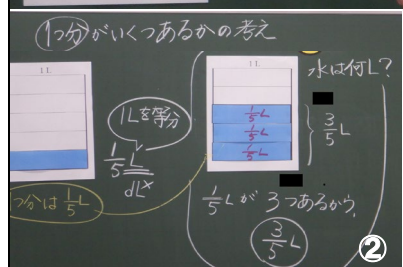 1つ分がいくつあるかの考え
1L
1Lを等分
1/5 L
dL×
1つ分は1/5L
1L
1/5L
1/5L
1/5L
水は何L?
3/5L
1/5Lが3つあるから、
3/5L
②